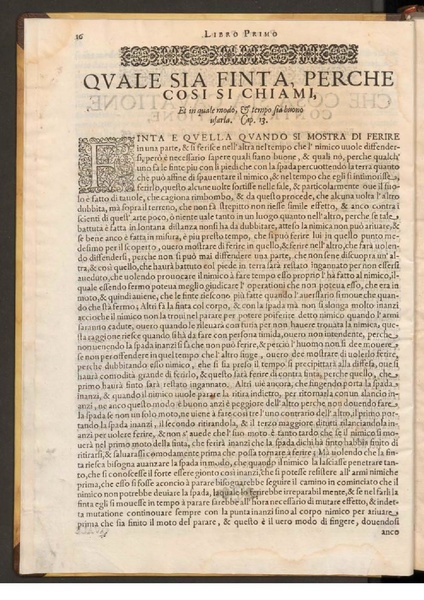 16 LIBRO PRIMO
QVALE SIA FINTA, PERCHE
COSI SI CHIAMI,
Et in quale modo, & tempo sia buono
usarla. Cap. 13.
FINTA E QVELLA QVANDO SI MOSTRA DI FERIRE
in una parte, & si ferisce nell'altra nel tempo che l' nimico uuole diffender-
si, però è necessario sapere quali siano buone, & quali nò, perche qualch'
uno fa le finte piu con li piedi che con la spada percuottendo la terra quanto
che può affine di spauentare il nimico, & nel tempo che egli si intimorisse
ferirlo, questo alcune uolte sortisse nelle sale, & particolarmente oue il suo-
lo è fatto di tauole, che cagiona rimbombo, & da questo procede, che alcuna uolta l'altro
dubbita, mà sopra il terreno, che non fà strepitto non riesse simile effetto, & anco contra i
scienti di quell' arte poco, ò niente uale tanto in un luogo quanto nell'altro, perche se tale
battuta è fatta in lontana distanza non si ha da dubbitare, atteso la nimica non può ariuare, &
se bene anco è fatta in misura, è piu presto tempo, che si può ferire lui in quello punto me-
desimo per il scoperto, ouero mostrare di ferire in quello, & ferire nell'altro, che farà uolen-
do diffendersi, perche non si può mai diffendere una parte, che non sene discuopra un' al-
tra, & così quello, che hauerà battuto del piede in terra sarà restato ingannato per non esserli
aueduto, che uolendo prouocare il nimico à fare tempo esso proprio l' hà fatto al nimico, il
quale essendo fermo poteua meglio giudicare l' operationi che non poteua esso, che era in
moto, & quindi auiene, che le finte deseono più fatte quando l' auerssario si moue che quan-
do che stà fermo, Altri fà la finta col corpo, & con la spada mà non si slonga molto inanzi
accioche il nimico non la troui nel parare per potere poi ferire detto nimico quando l' armi
saranno cadute, ouero quando le rileuarà con furia per non hauere trouata la nimica, que-
sta raggione riesce quando si hà da fare con persona timida, ouero non intendente, perche
non uenendo la spada inanzi si sà che non può ferire, & perciò l' huomo non si dee mouere
se non per offendere in quel tempo che l' altro finge, ouero dee mostrare di uolerlo ferire,
perche dubbitando esso nimico, che si sia preso il tempo si precipittarà alla diffesa, oue si
hauerà comodità grande di ferirlo, & questo sarà ferire di contra finta, perche quello, che
primo hauerà finto sarà restato ingannato. Altri uiè ancora, che fingendo porta la spada
inanzi, & quando il nimico uuole parare la ritira indietro, per ritornarla con un alancio in-
anzi, ne anco questo modo è buono anzi è peggiore dell'altro perche non douendo fare
la spada se non un solo moto, ne uiene à fare così tre l'uno contrario dell' altro, il primo por-
tando la spada inanzi, il secondo ritirandola, & il terzo maggiore dituti rilanciandola in-
anzi per uolere ferire, & non s' auede che l' suo moto è tanto tardo che se il nimico si mo-
uerà nel primo moto della finta, che ferirà inanzi che la spada di chi ha finto habbia finito di
ritirarsi, & saluarassi comodamente prima che possa tornare à ferire; Mà uolendo che la fin-
ta riesca bisogna auanzare la spada inmodo, che quando il nimico la lasciasse penetrare tan-
to, che si conoscesse il forte essere gionto così inanzi, che si potesse resistere all'armi nimiche
prima, che esso si fosse aconcio à parare bisognarebbe seguire il camino in cominciato che il
nimico non potrebbe deuiare la spada, laquale lo ferirebbe irreparabilmente, & se nel farli la
finta egli si mouesse in tempo à parare sarebbe all' hora necessario di mutare effetto, & indet-
ta mutatione continouare sempre con la punta inanzi fino al corpo nimico per ariuare
prima che sia finito il moto del parare, & questo è il uero modo di fingere, douendosi
anco